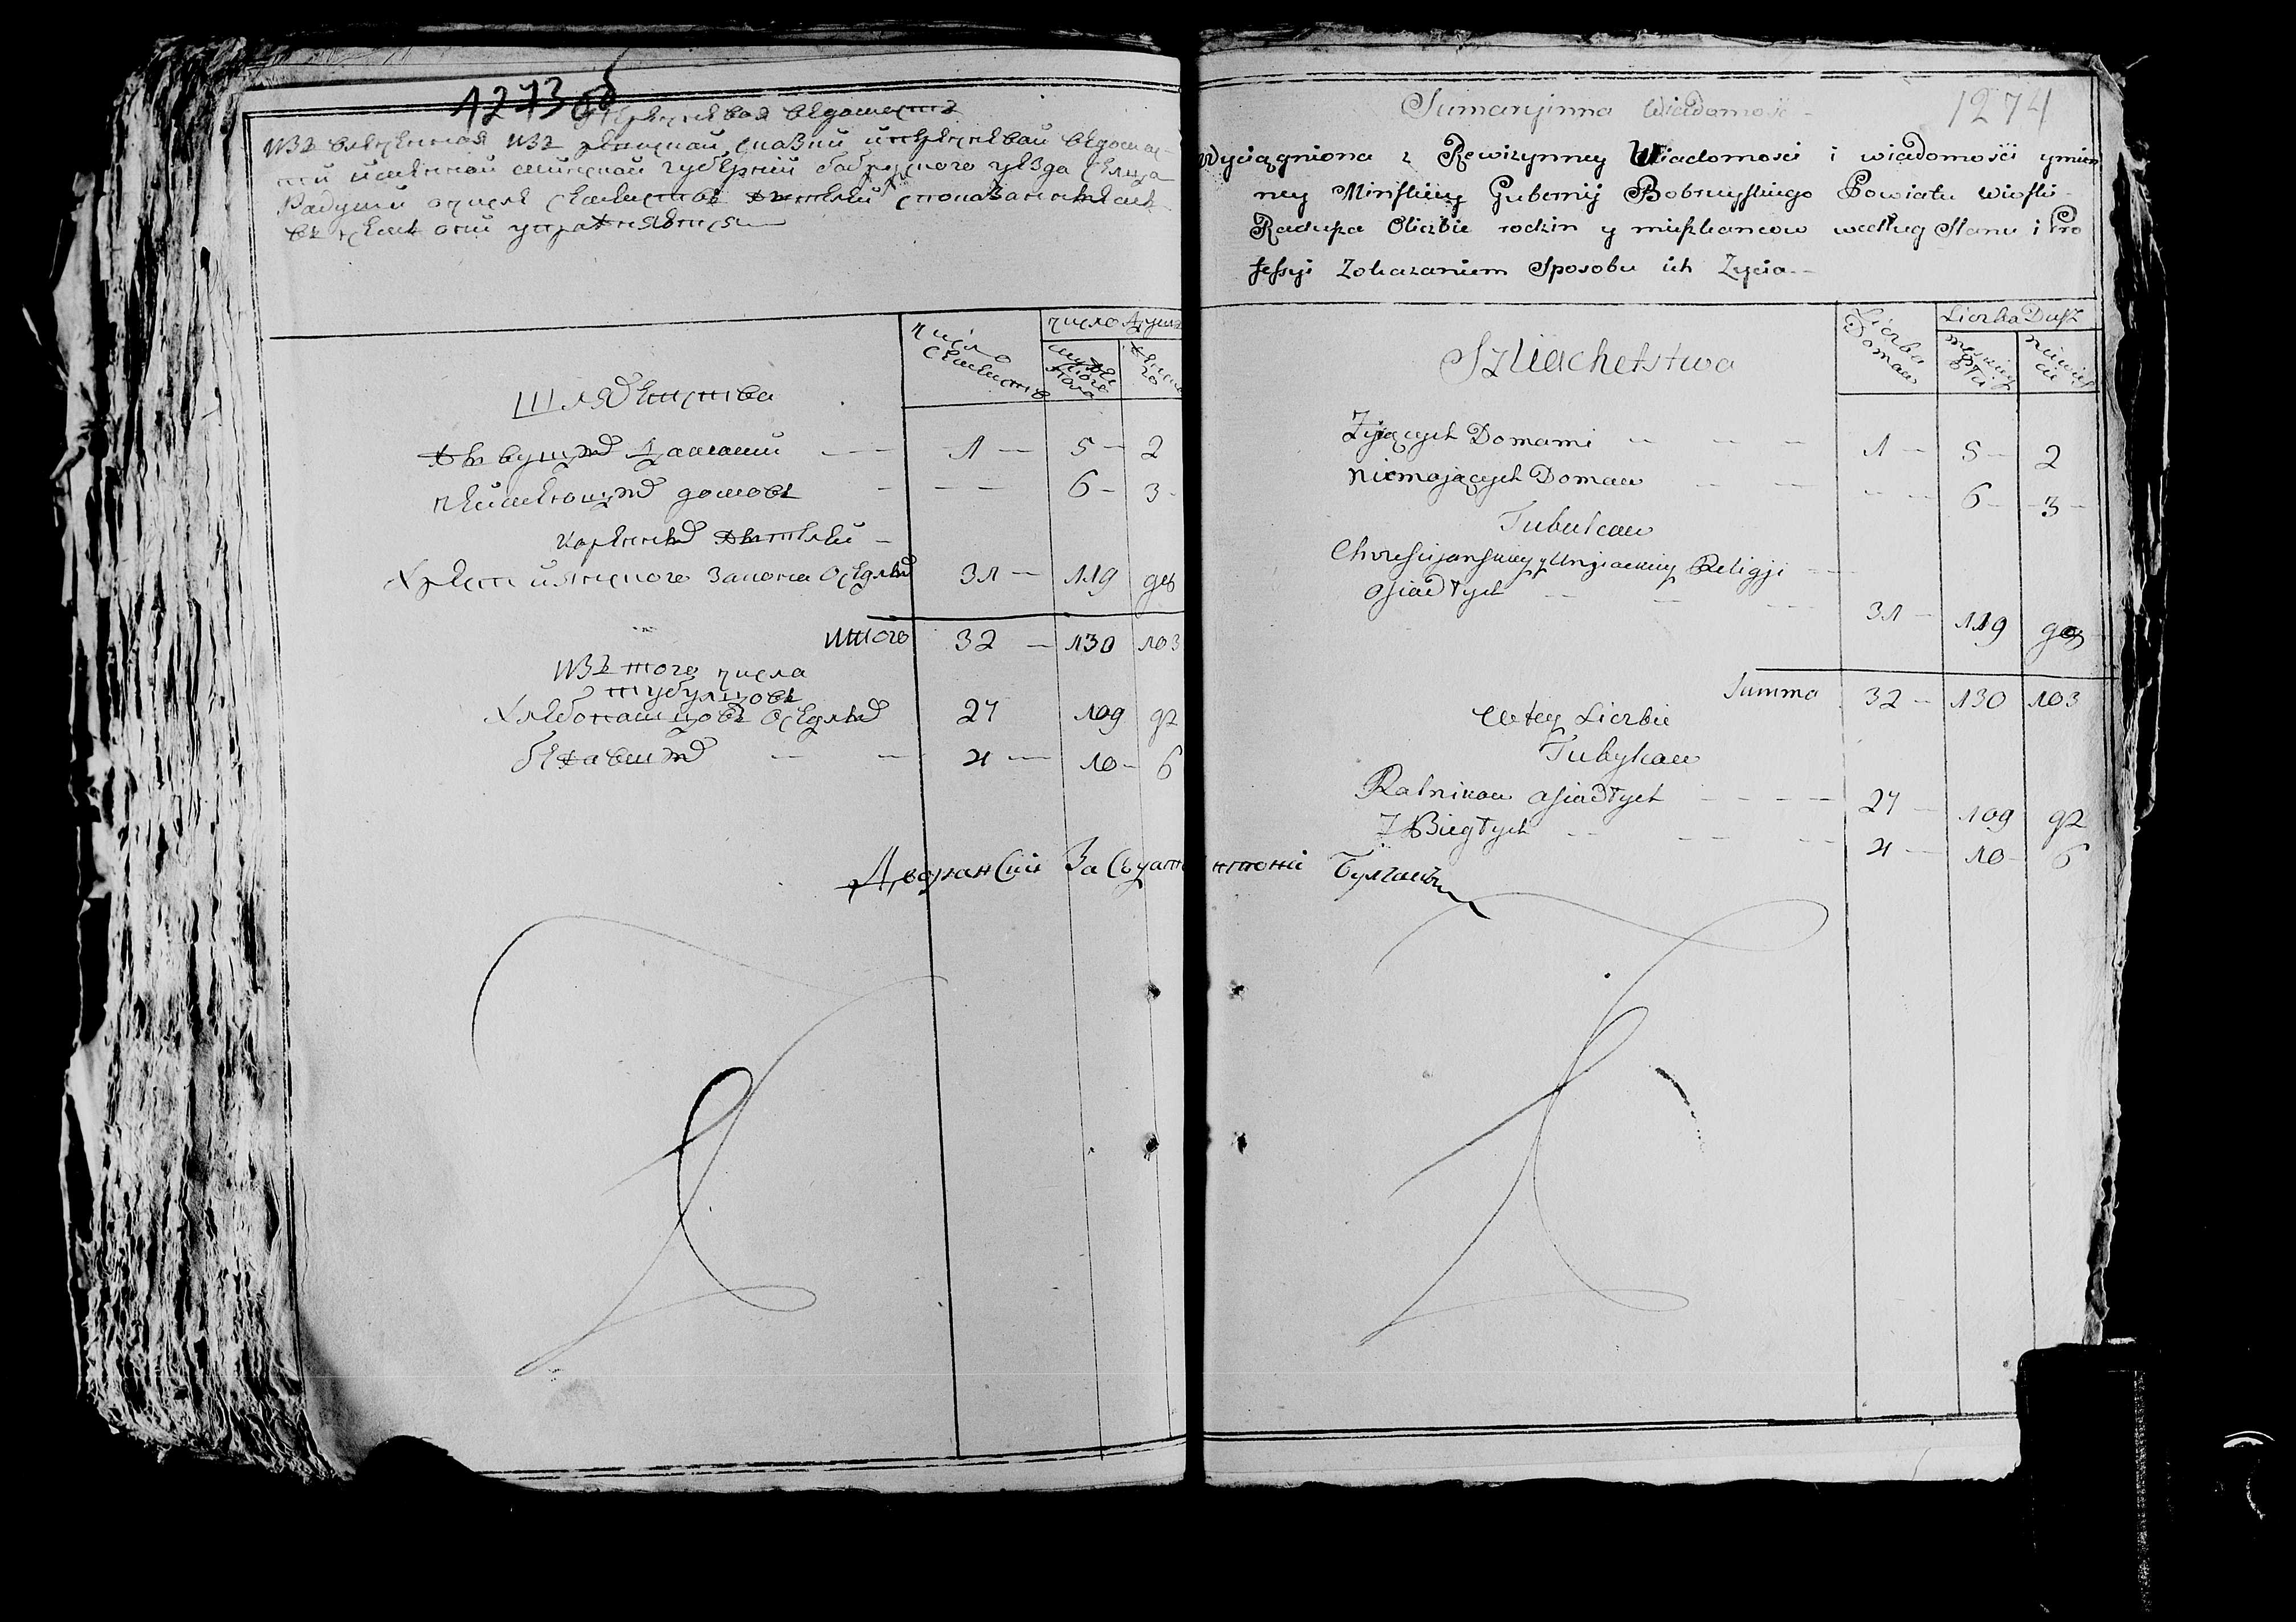 1273 об
Перечневая ведомость
извлеченная из ревиской сказки и перечневой ведомос
ти именной минской губернии бобруского уезда Сельца
Радуши о числе семейств жителей с показанием
в чем они упражняются
число семейств
число душ
мужеского пола
женска го
Шляхетства
Живущих Домами — — 1 — 5 — 2
неимеющих домов — — — 6 — 3 —
коренных жителей —
Християнского закона Оседлых 31 — 119 98
итого 32 — 130 103
из того числа
тубульцов
Хлебопашцов Оседлых 27 109 92
бежавших — — 4 — 10 — 6
Дворянский Заседатель Антоний Булгакъ
1274
Sumaryinna Wiadomość
Wyciągniona z Rewizynney Wiadomosci i wiadomośći ymien
ney Minskiey Gubernij Bobruyskiego Powiatu wioski
Radusza Oliczbie rodzin y mieszkancow według Stanu i Pro
fessyi Zokazaniem Sposobu ich Zycia
Liczba Domow
Liczba Dusz
męskiey płci
niewieściey
Szliachetstwa
Żyiących Domami — — — 1 — 5 — 2
Niemających Domow — — — 6 — 3 —
Tubulcow
Chrescijanskiey y Unziackiey Religji — —
osiadłych — — — 31 — 119 98
Summa 32 — 130 103
Wtey Liczbie
Tubylcow
Rolnikow osiadłych — — — — 27 — 109 92
Zbiegłych — — — 4 — 10 — 6